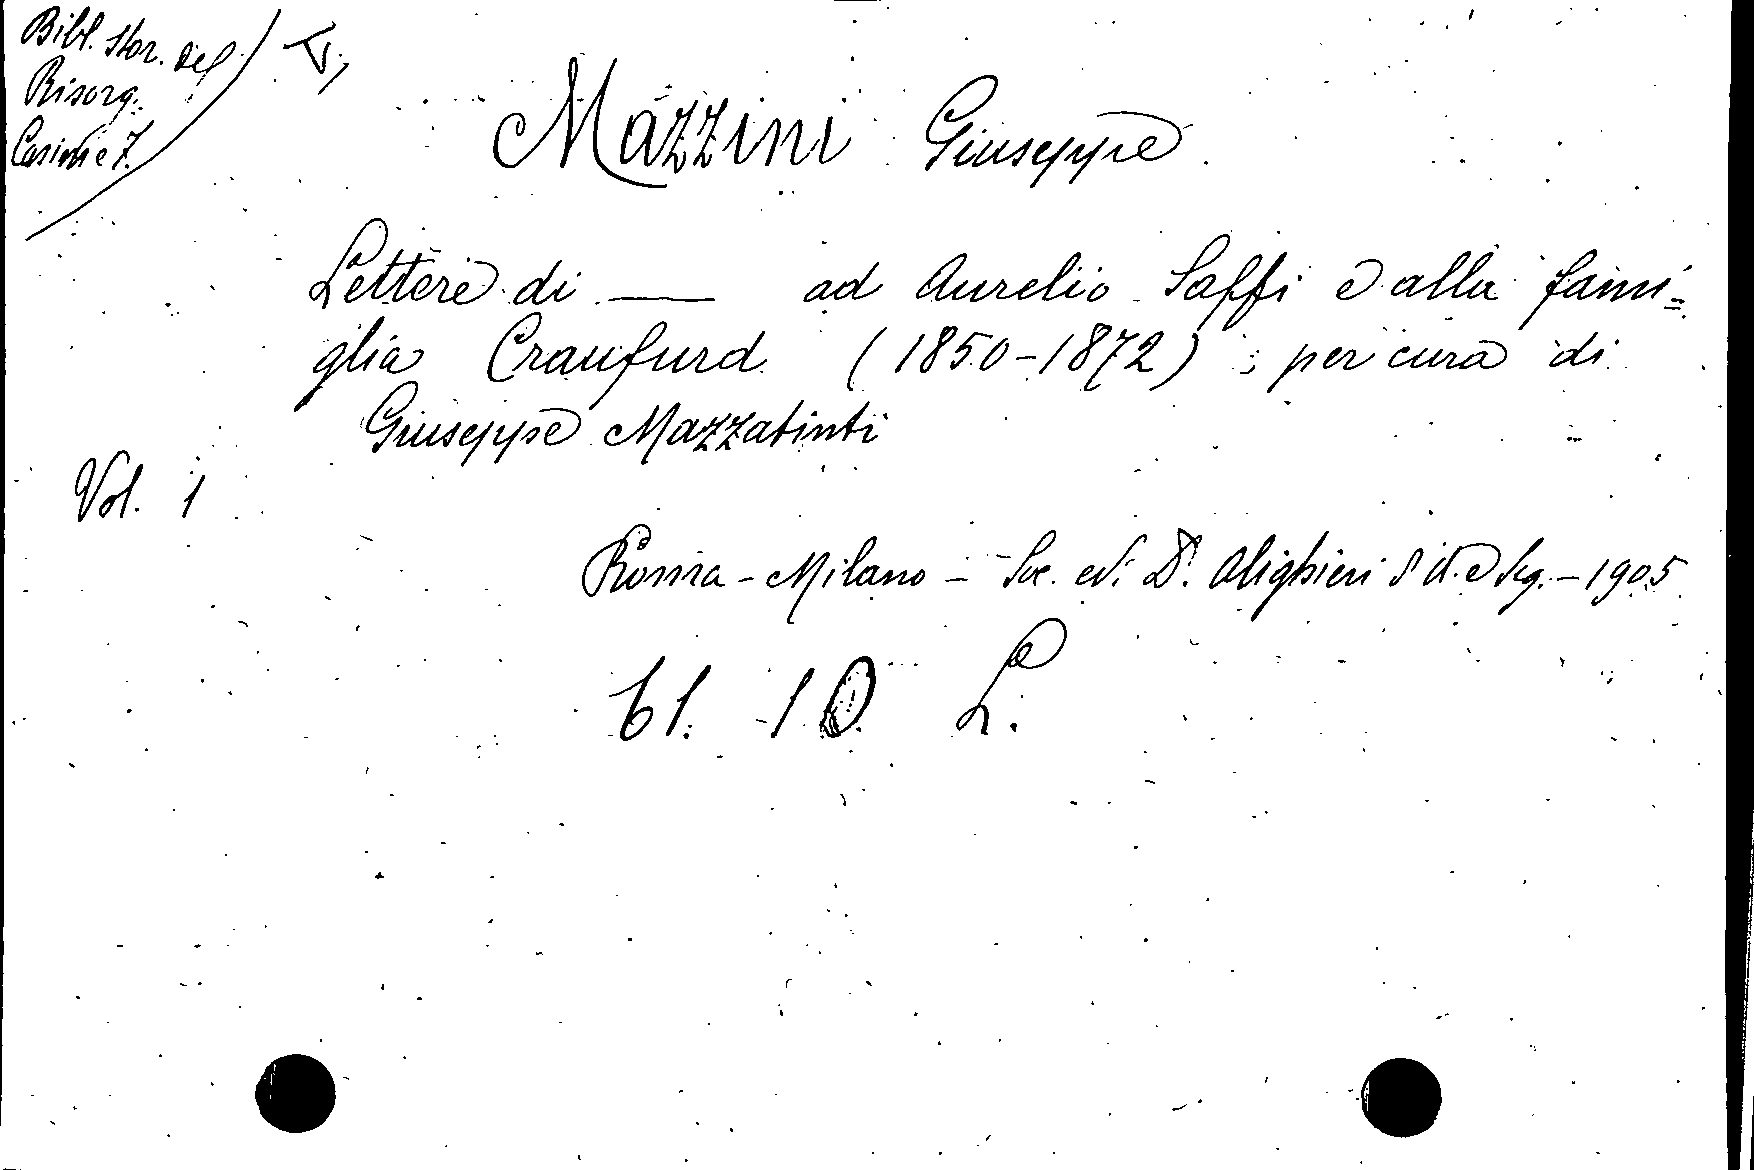 Bibl. Stor. del
Risorg.
V,
Mazzini Giuseppe
Lettere di —— ad Aurelio Saffi e alla fami=
glia Craufurd (1850-1872); per cura di
Giuseppe Mazzatinti
Vol. 1
Roma - Milano - Soc. ed. D. Alighieri e Sg. - 1905
61. 10 L.